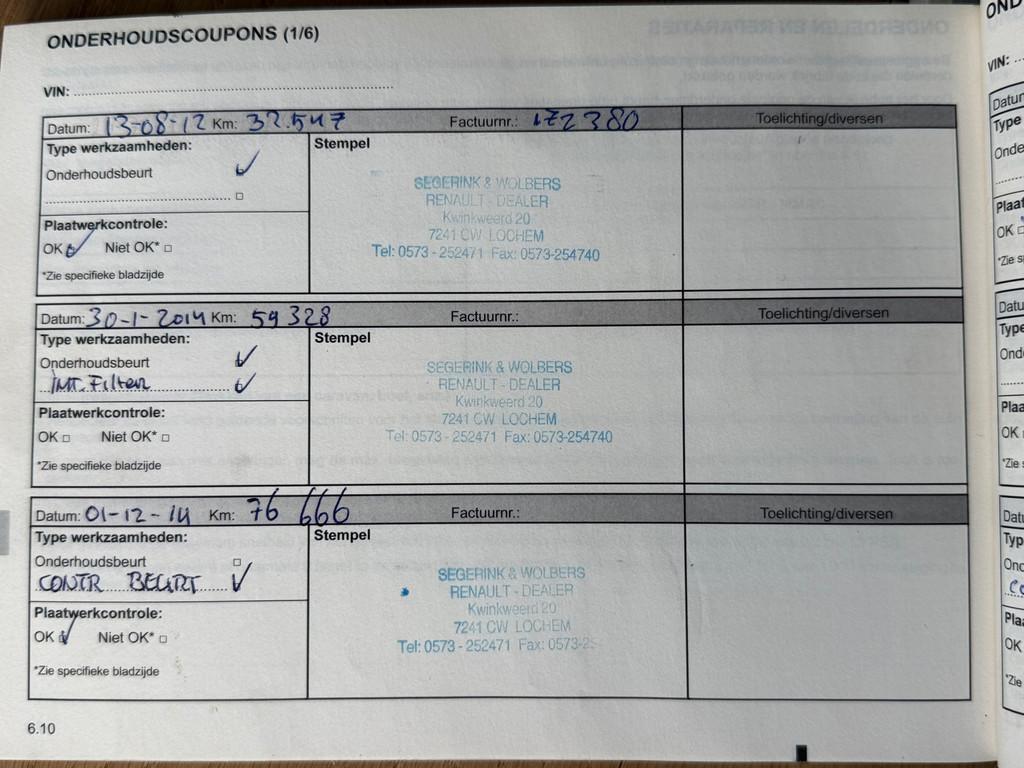 ONDERHOUDSCOUPONS (1/6)
VIN:
Datum: 13-08-12 Km: 32.547 Factuurnr.: 172380 Toelichting/diversen
Type werkzaamheden: Stempel
Onderhoudsbeurt
SEGERINK & WOLBERS
RENAULT - DEALER
Kwinkweerd 20
7241 CW LOCHEM
Tel: 0573 - 252471 Fax: 0573-254740
Plaatwerkcontrole:
OK Niet OK*
*Zie specifieke bladzijde
Datum: 30-1-2014 Km: 59 328 Factuurnr.: Toelichting/diversen
Type werkzaamheden: Stempel
Onderhoudsbeurt
int. Filter
SEGERINK & WOLBERS
RENAULT - DEALER
Kwinkweerd 20
7241 CW LOCHEM
Tel: 0573 - 252471 Fax: 0573-254740
Plaatwerkcontrole:
OK Niet OK*
*Zie specifieke bladzijde
Datum: 01-12-14 Km: 76 666 Factuurnr.: Toelichting/diversen
Type werkzaamheden: Stempel
Onderhoudsbeurt
CONTR BEURT
SEGERINK & WOLBERS
RENAULT - DEALER
Kwinkweerd 20
7241 CW LOCHEM
Tel: 0573 - 252471 Fax: 0573-25
Plaatwerkcontrole:
OK Niet OK*
*Zie specifieke bladzijde
6.10